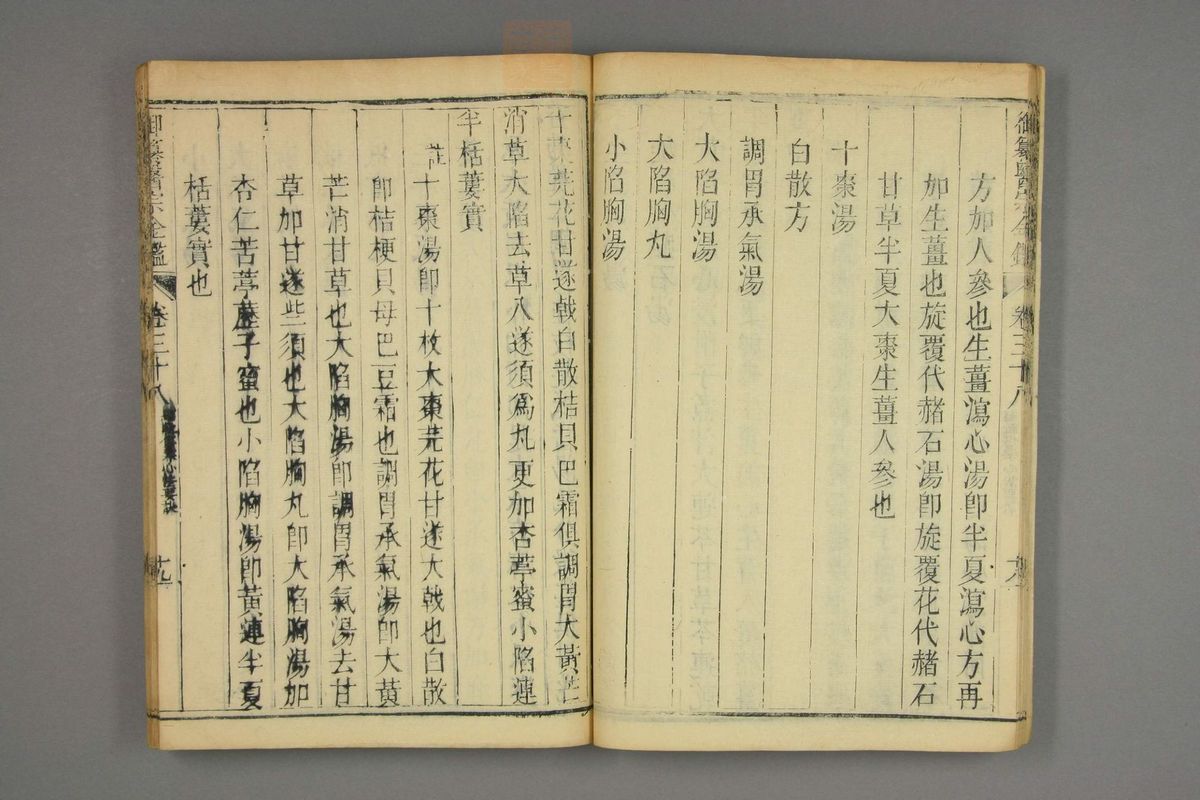 方加人參也生薑瀉心湯卽半夏瀉心方再
加生薑也旋覆代赭石湯卽旋覆花代赭石
甘草半夏大棗生薑人參也
十棗湯
白散方
調胃承氣湯
大陷胸湯
大陷胸丸
小陷胸湯
十棗芫花甘遂戟白散桔貝巴霜俱調胃大黃芒
消草大陷去草八遂須爲丸更加杏葶蜜小陷連
半栝蔞實
註十棗湯卽十枚大棗芫花甘遂大戟也白散
卽桔梗貝母巴豆霜也調胃承氣湯卽大黃
芒消甘草也大陷胸湯卽調胃承氣湯去甘
草加甘遂些須也大陷胸丸卽大陷胸湯加
杏仁苦葶藶子蜜也小陷胸湯卽黃連半夏
栝蔞實也
御纂醫宗金鑑
卷三十八